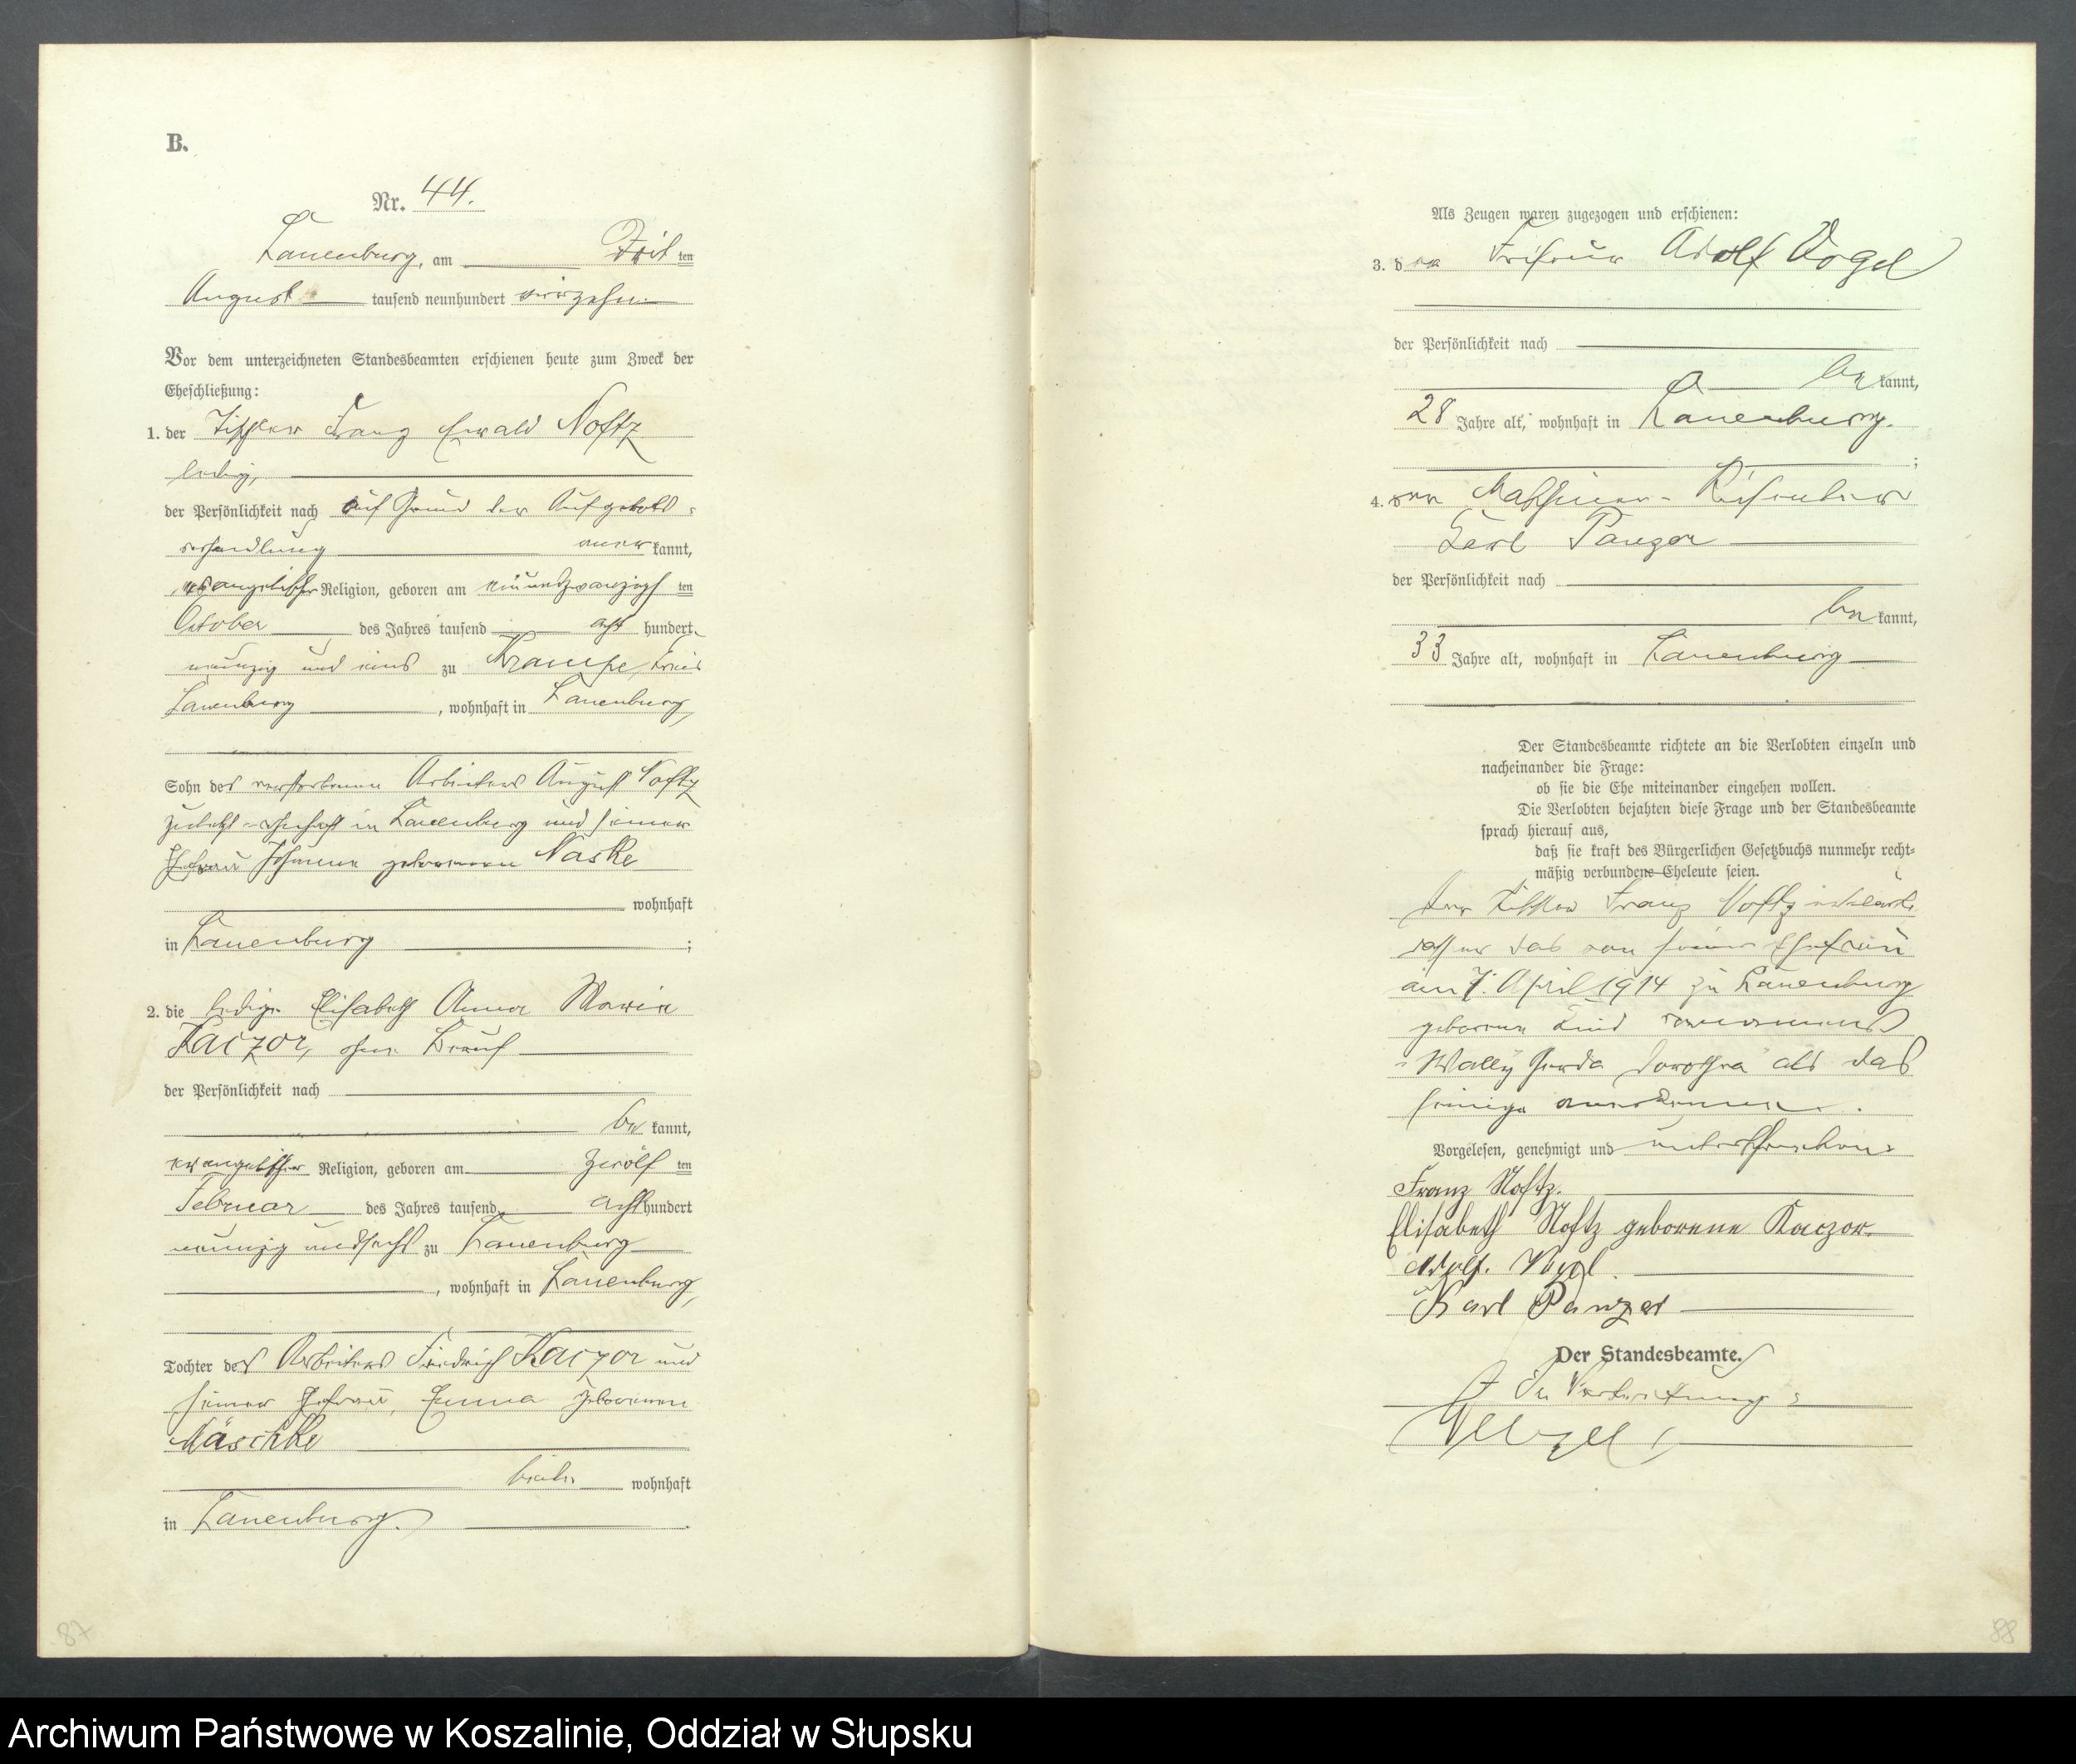 B.
Nr. 44.
Lauenburg, am dritten
August tausend neunhundert vierzehn
Vor dem unterzeichneten Standesbeamten erschienen heute zum Zweck der
Eheschließung:
1. der Tischler Franz Ewald Noftz
ledig,
der Persönlichkeit nach auf Grund der Aufgebots-
verhandlung anerkannt,
evangelischer Religion, geboren am neunundzwanzigsten
October des Jahres tausend acht hundert
neunzig und eins zu Krampe, Kreis
Lauenburg, wohnhaft in Lauenburg,
Sohn des verstorbenen Arbeiters August Noftz
zuletzt wohnhaft in Lauenburg und seiner
Ehefrau Johanna geborenen Naske
wohnhaft
in Lauenburg;
2. die ledige Elisabeth Anna Maria
Kaczor, ohne Beruf
der Persönlichkeit nach
bekannt,
evangelischer Religion, geboren am zwölften
Februar des Jahres tausend achthundert
neunzig und sechs zu Lauenburg
, wohnhaft in Lauenburg,
Tochter des Arbeiters Friedrich Kaczor und
seiner Ehefrau, Emma geborenen
Mäschke
beide wohnhaft
in Lauenburg.
Als Zeugen waren zugezogen und erschienen:
3. der Friseur Adolf Vogel
der Persönlichkeit nach
bekannt,
28 Jahre alt, wohnhaft in Lauenburg.
;
4. der Maschinen-
Karl Panzer
der Persönlichkeit nach
bekannt,
33 Jahre alt, wohnhaft in Lauenburg
Der Standesbeamte richtete an die Verlobten einzeln und
nacheinander die Frage:
ob sie die Ehe miteinander eingehen wollen.
Die Verlobten bejahten diese Frage und der Standesbeamte
sprach hierauf aus,
daß sie kraft des Bürgerlichen Gesetzbuchs nunmehr recht-
mäßig verbundene Eheleute seien.
Der Tischler Franz Noftz erklärte
daß er das von seiner Ehefrau
am 7. April 1914 zu Lauenburg
geborene Kind
"Wally Gerda Dorothea" als das
seinige anerkenne.
Vorgelesen, genehmigt und unterschrieben
Franz Noftz.
Elisabeth Noftz geborene Kaczor.
Adolf. Vogel.
Karl Panzer
Der Standesbeamte.
In Vertretung:
87
88
Archiwum Państwowe w Koszalinie, Oddział w Słupsku